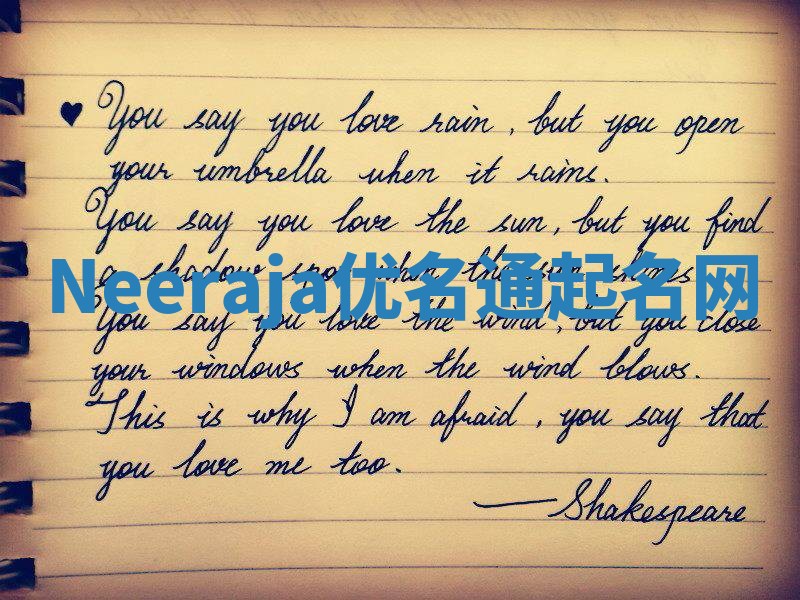 ♥ You say you love rain, but you open
your umbrella when it rains.
You say you love the sun, but you find
a shadow spot when the sun shines
Neeraja优名通起名网
You say you love the wind, but you close
your windows when the wind blows.
This is why I am afraid, you say that
you love me too.
—Shakespeare